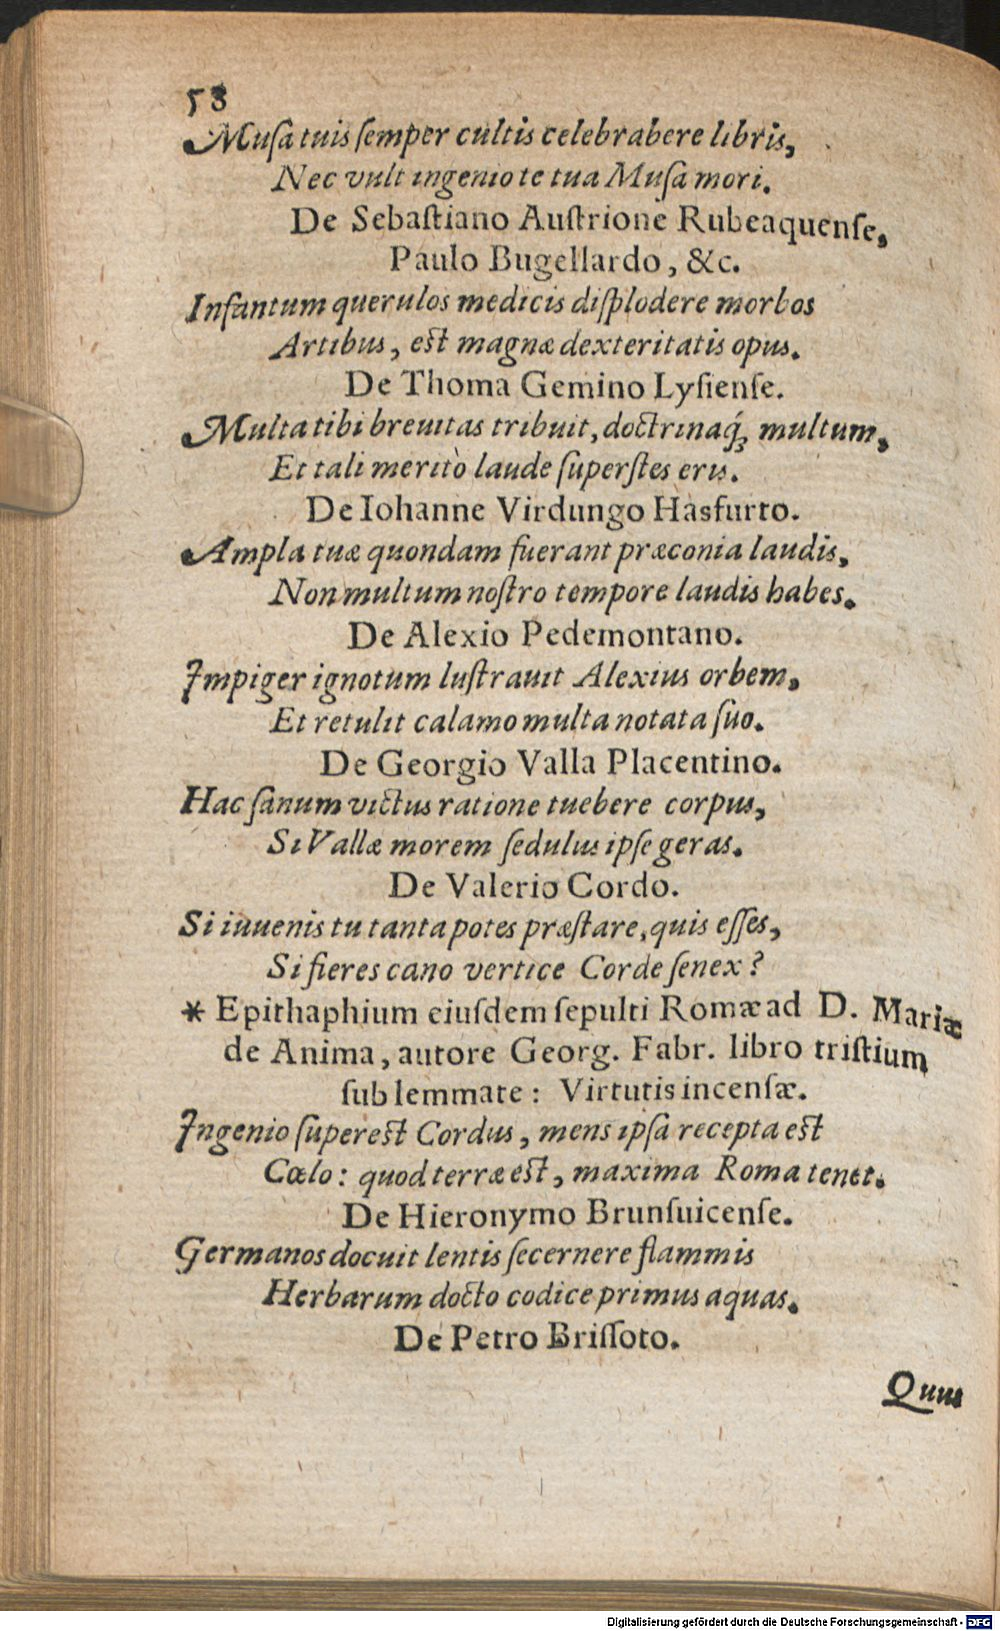 58
Muſa tuis ſemper cultis celebrabere libris,
Nec vult ingenio te tua Muſa mori.
De Sebaſtiano Auſtrione Rubeaquenſe,
Paulo Bugellardo, &c.
Infantum querulos medicis diſplodere morbos
Artibus, eſt magnæ dexteritatis opus.
De Thoma Gemino Lyſienſe.
Multa tibi breuitas tribuit, doctrinaq́; multum,
Et tali meritò laude ſuperſtes eris.
De Iohanne Virdungo Hasfurto.
Ampla tuæ quondam fuerant præconia laudis,
Non multum noſtro tempore laudis habes.
De Alexio Pedemontano.
Impiger ignotum luſtrauit Alexius orbem,
Et retulit calamo multa notata ſuo.
De Georgio Valla Placentino.
Hac ſanum victus ratione tuebere corpus,
Si Vallæ morem ſedulus ipſe geras.
De Valerio Cordo.
Si iuuenis tu tanta potes præſtare, quis eſſes,
Si fieres cano vertice Corde ſenex?
* Epithaphium eiuſdem ſepulti Romæ ad D. Mariæ
de Anima, autore Georg. Fabr. libro triſtium
ſub lemmate: Virtutis incenſæ.
Ingenio ſupereſt Cordus, mens ipſa recepta eſt
Cœlo: quod terræ eſt, maxima Roma tenet.
De Hieronymo Brunſuicenſe.
Germanos docuit lentis ſecernere flammis
Herbarum docto codice primus aquas.
De Petro Briſſoto.
Quus
Digitalisierung gefördert durch die Deutsche Forschungsgemeinschaft - DFG